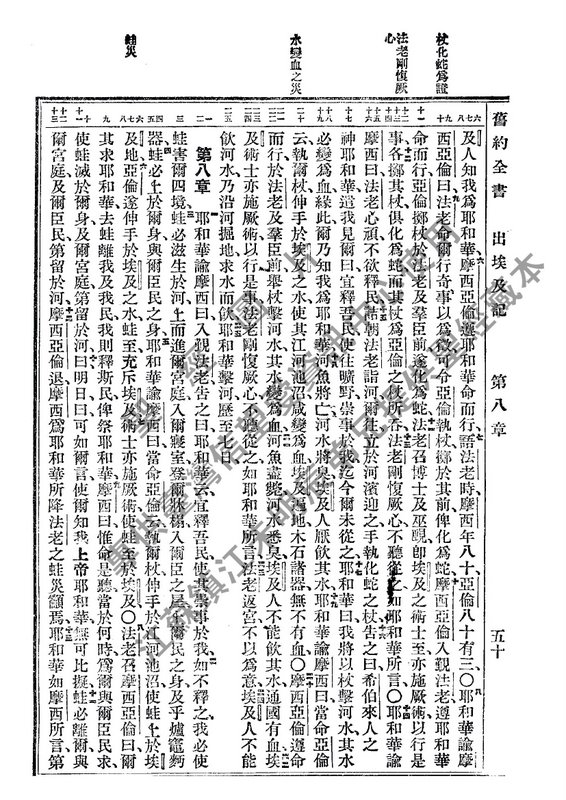 杖化蛇爲證
法老剛愎厥心
水變血之災
蛙災
舊約全書 出埃及記 第八章 五十
及人知我爲耶和華、摩西亞倫遵耶和華命而行、語法老時、摩西年八十、亞倫八十有三、〇耶和華諭摩
西亞倫曰、法老命爾行奇事以爲徵、可令亞倫執杖、擲於其前、俾化爲蛇、摩西亞倫入覲法老、遵耶和華
命而行、亞倫擲杖於法老及羣臣前、遂化爲蛇、法老召博士及巫覡、卽埃及之術士至、亦施厥術、以行是
事、各擲其杖、俱化爲蛇、而其杖爲亞倫之杖所吞、法老剛愎厥心、不聽從之、如耶和華所言、〇耶和華諭
摩西曰、法老心頑、不欲釋民、詰朝法老詣河、爾往立於河濱迎之、手執化蛇之杖、告之曰、希伯來人之
神耶和華遣我見爾曰、宜釋吾民、使往曠野崇事於我、迄今爾未從之、耶和華曰、我將以杖擊河水、其水
必變爲血、緣此爾乃知我爲耶和華、河魚將亡、河水將臭、埃及人厭飲其水、耶和華諭摩西曰、當命亞倫
云、執爾杖、伸手於埃及之水、使其江河池沼咸變爲血、埃及遍地、木石諸器、無不有血、〇摩西亞倫遵命
而行、於法老及羣臣前、舉杖擊河水、其水變爲血、河魚盡斃、河水悉臭、埃及人不能飲其水、通國有血、埃
及術士亦施厥術、以行是事、法老剛愎厥心、不聽從之、如耶和華所言、法老返宮、不以爲意、埃及人不能
飲河水、乃沿河掘地、求水而飲、耶和華擊河、歷至七日、
第八章 耶和華諭摩西曰、入覲法老、告之曰、耶和華云、宜釋吾民、使其崇事於我、如不釋之、我必使
蛙害爾四境、蛙必滋生於河、上而進爾宮庭、入爾寢室、登爾牀榻、入爾臣之居、於爾民之身、及乎爐竈麪
器、蛙必上於爾身、與爾臣民之身、耶和華諭摩西曰、當命亞倫執爾杖、伸手於江河池沼、使蛙上於埃
及地、亞倫遂伸手於埃及之水、蛙至、充斥埃及、術士亦施厥術、使蛙至於埃及、〇法老召摩西亞倫曰、爾
其求耶和華去蛙、離我及我民、我則釋斯民、俾祭耶和華、摩西曰、惟命是聽、當於何時、爲爾與爾臣民求、
使蛙滅於爾身、及爾宮庭、第留於河、曰、明日、曰、可如爾言、使爾知我上帝耶和華、無可比擬、蛙必離爾、與
爾宮庭、及爾臣民、第留於河、摩西亞倫退、摩西爲耶和華所降法老之蛙災籲焉、耶和華如摩西所言、第